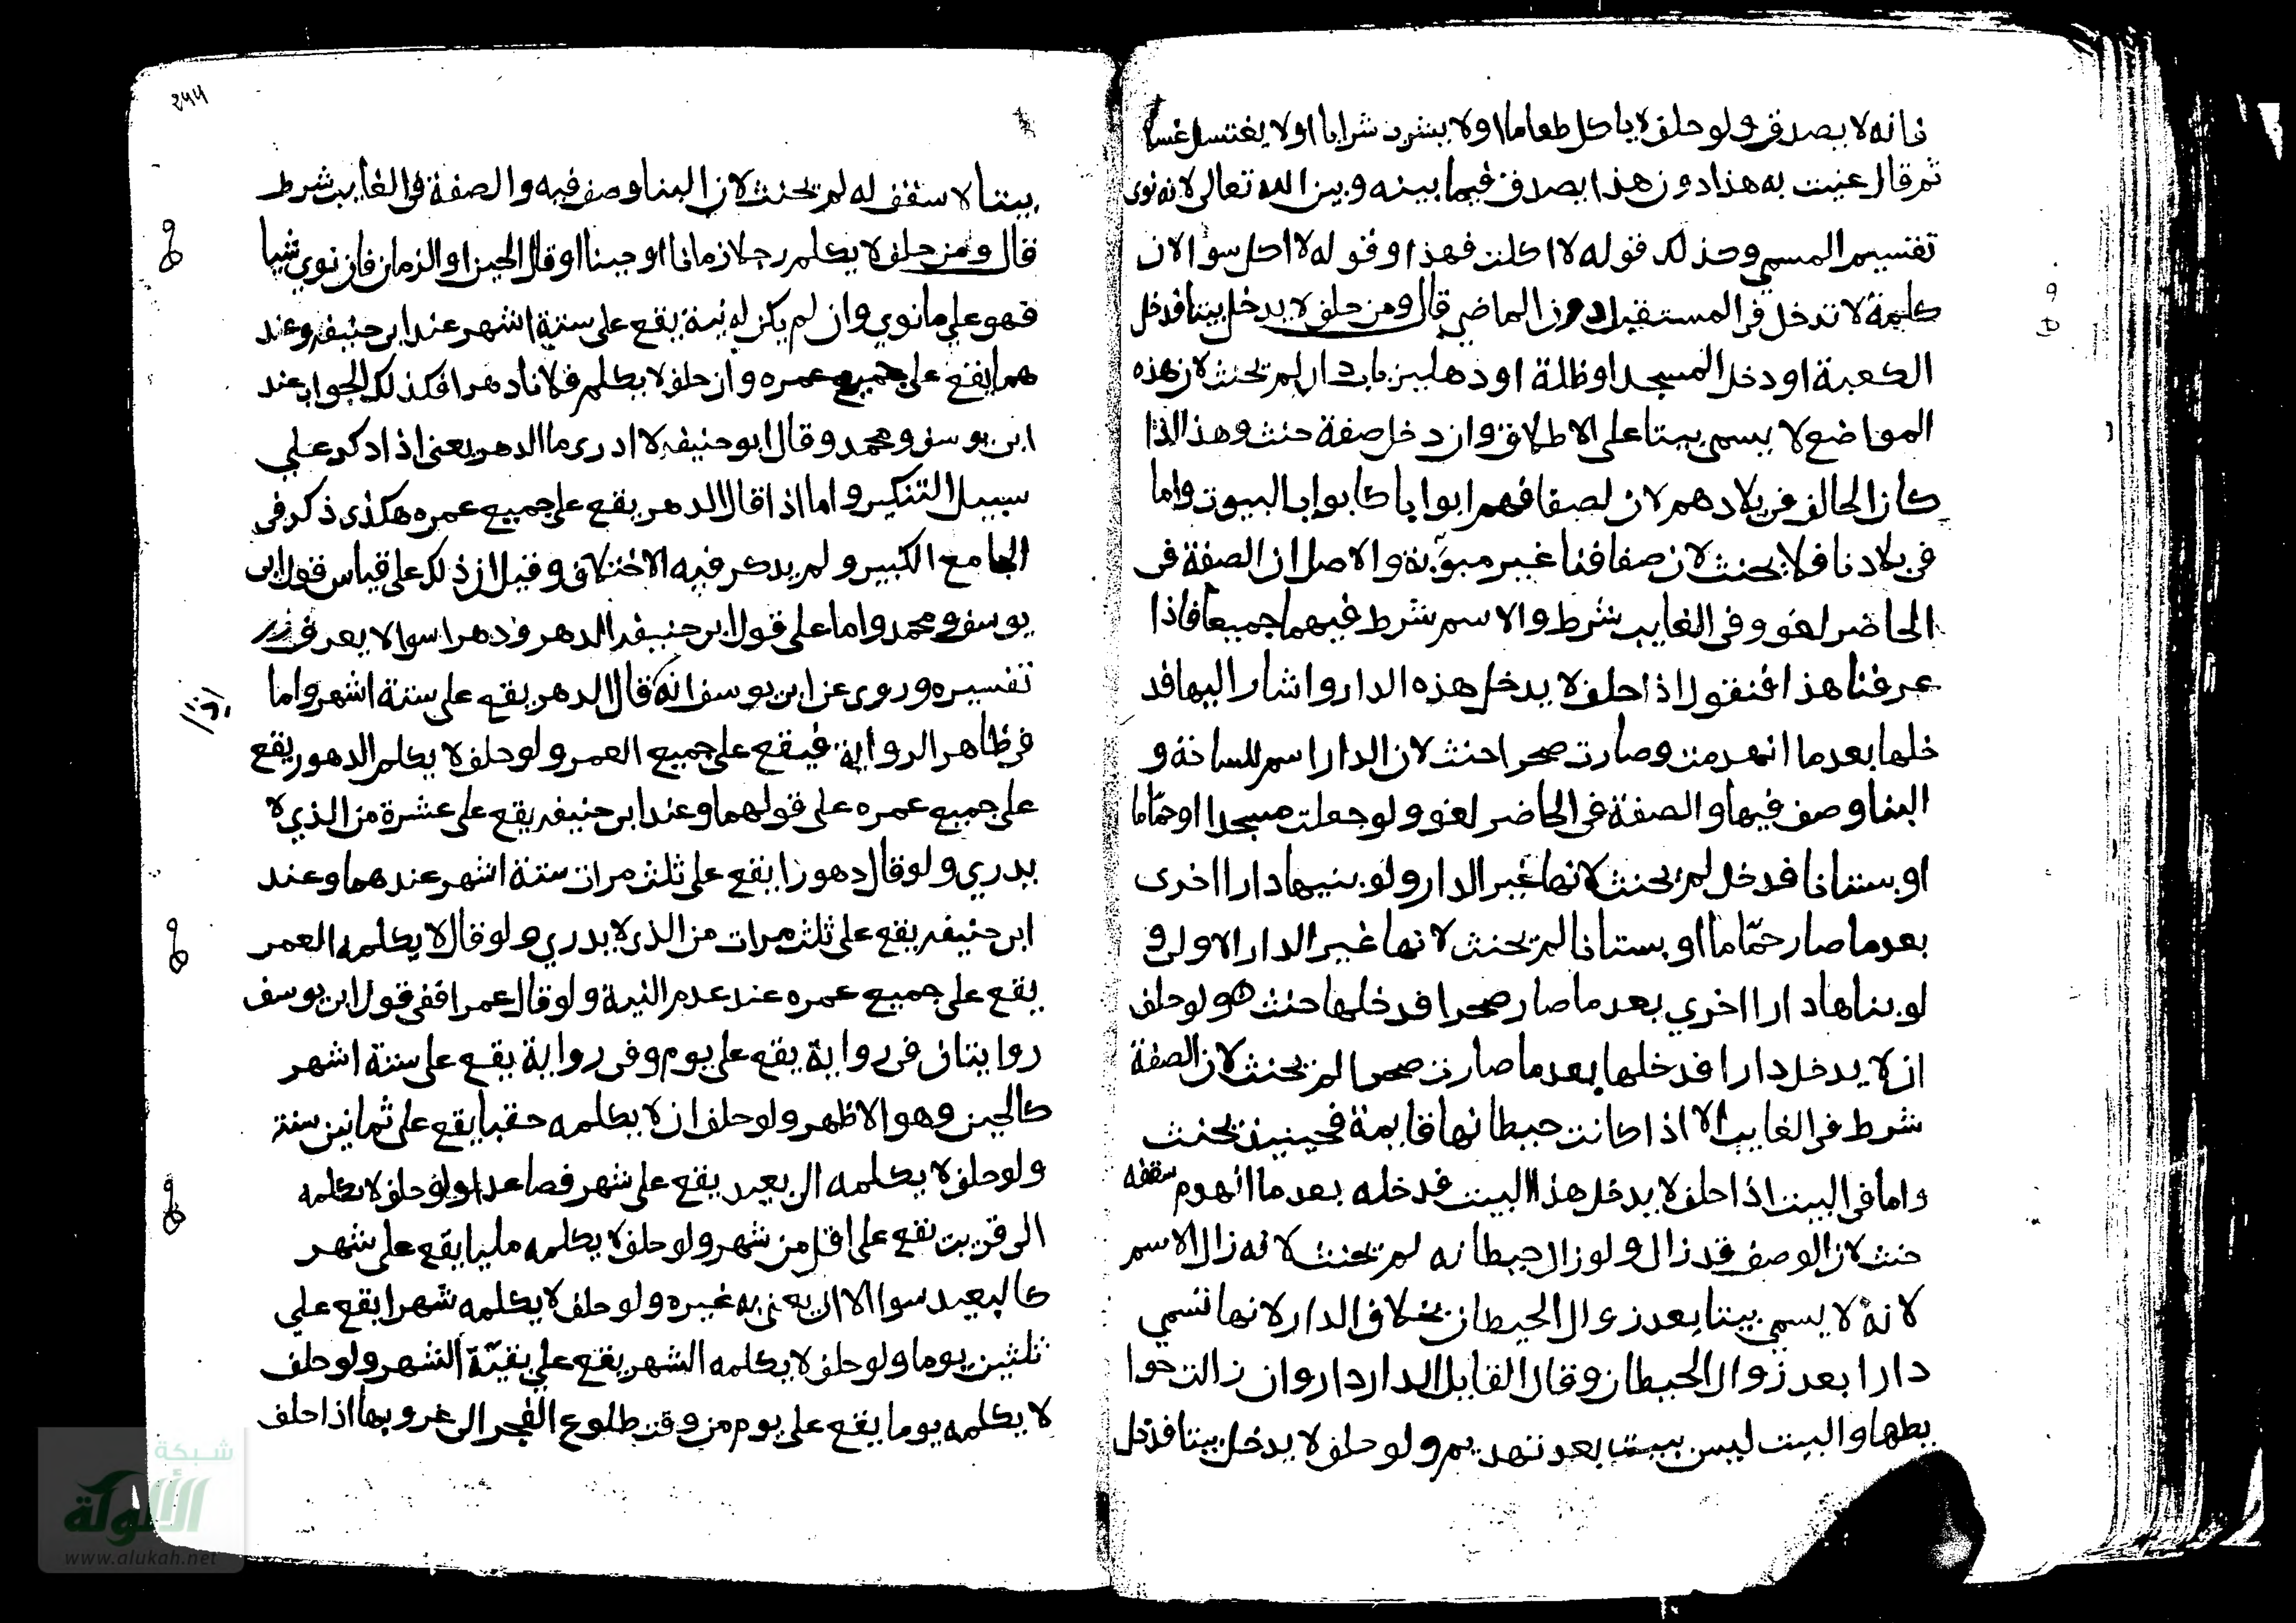 فانه لا يصدق ولو حلف لا ياكل طعاما اولا يشرب شرابا اولا يغتسل غسلا
ثم قال عنيت به هذا دون هذا يصدق فيما بينه وبين الله تعالى لانه نوى
تفسير المسمي وكذلك قوله لا اكلت فهذا وقوله لا اكل سوا الا ان
كلمة لا تدخل في المستقبل دون الماضي قال ومن حلف لا يدخل بيتا فدخل
الكعبة او دخل المسجد او ظلة او دهليز باب دار لم يحنث لان هذه
المواضع لا يسمى بيتا على الاطلاق وان دخل صفة حنث وهذا اذا
كان الحالف في بلادهم لان لصفافهم ابوابا كابواب البيوت واما
في بلادنا فلا يحنث لان صفافنا غير مبوّبة والاصل ان الصفة في
الحاضر لغو وفي الغايب شرط والاسم شرط فيهما جميعا فاذا
عرفنا هذا فنقول اذا حلف لا يدخل هذه الدار واشار اليها فد
خلها بعد ما انهدمت وصارت صحرا حنث لان الدار اسم للساحة و
البنا وصف فيها والصفة في الحاضر لغو ولو جعلت مسجدا او حمّاما
او بستانا فدخل لم يحنث لانها غير الدار ولو بنيها دارا اخرى
بعد ما صار حمّاما او بستانا لم يحنث لانها غير الدار الاولى و
لو بناها دارا اخري بعد ما صار صحرا فدخلها حنث ولو حلف
ان لا يدخل دارا فدخلها بعد ما صارت صحرا لم يحنث لان الصفة
شرط في الغايب الا اذا كانت حيطانها قايمة فحينيذ يحنث
واما في البيت اذا حلف لا يدخل هذا البيت فدخله بعد ما انهدم سقفه
حنث لان الوصف قد زال ولو زال حيطانه لم يحنث لانه زال الاسم
لانه لا يسمي بيتا بعد زوال الحيطان بخلاف الدار لانها تسمي
دارا بعد زوال الحيطان وقال القايل الدار دار وان زالت حوا
يطها والبيت ليس ببيت بعد تهديم ولو حلف لا يدخل بيتا فدخل
٢٩٩
بيتا لا سقف له لم يحنث لان البنا وصف فيه والصفة في الغايب شرط
قال ومن حلف لا يكلم رجلا زمانا او حينا او قال الحين او الزمان فان نوي شيا
فهو علي ما نوي وان لم يكن له نية يقع على ستة اشهر عند ابي حنيفه وعند
هما يقع على جميع عمره وان حلف لا يكلم فلانا دهرا فكذلك الجواب عند
ابي يوسف ومحمد وقال ابو حنيفه لا ادري ما الدهر يعني اذا ذكر علي
سبيل التنكير واما اذا قال الدهر يقع على جميع عمره هكذى ذكر في
الجامع الكبير ولم يذكر فيه الاختلاف وقيل ان ذلك على قياس قول ابي
يوسف ومحمد واما على قول ابي حنيفه الدهر ودهرا سوا لا يعرف
تفسيره وروى عن ابي يوسف انه قال الدهر يقع على ستة اشهر واما
في ظاهر الرواية فيقع على جميع العمر ولو حلف لا يكلم الدهور يقع
على جميع عمره على قولهما وعند ابي حنيفه يقع على عشرة من الذي لا
يدري ولو قال دهورا يقع على ثلث مرات ستة اشهر عندهما وعند
ابي حنيفه يقع على ثلث مرات من الذي لا يدري ولو قال لا يكلمه العمر
يقع على جميع عمره عند عدم النية ولو قال عمرا ففي قول ابي يوسف
روايتان في رواية يقع على يوم وفي رواية يقع على ستة اشهر
كالحين وهو الاظهر ولو حلف ان لا يكلمه حقبا يقع على ثمانين سنة
ولو حلف لا يكلمه الى بعيد يقع على شهر فصاعدا ولو حلف لا يكلمه
الى قريب يقع على اقل من شهر ولو حلف لا يكلمه مليا يقع على شهر
كالبعيد سوا الا ان يعني به غيره ولو حلف لا يكلمه شهرا يقع علي
ثلثين يوما ولو حلف لا يكلمه الشهر يقع علي بقيّة الشهر ولو حلف
لا يكلمه يوما يقع على يوم من وقت طلوع الفجر الى غروبها اذا حلف
شبكة
الألوكة
www.alukah.net